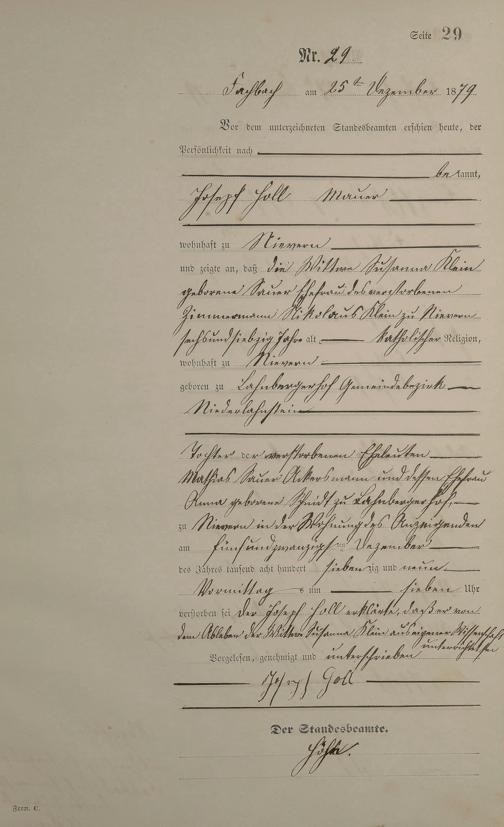 Seite 29
Nr. 29
Fachbach am 25ten Dezember 1879
Vor dem unterzeichneten Standesbeamten erschien heute, der
Persönlichkeit nach
be kannt,
Josepf Holl Mauer
wohnhaft zu Nievern
und zeigte an, daß die Wittwe Susanna Klein
geborene Sauer Ehefrau des verstorbenen
Zimmermann Nikolaus Klein zu Nievern
sechsundsiebzig Jahre alt katholischer Religion,
wohnhaft zu Nievern
geboren zu Lahnbergerhof Gemeindebezirk
Niederlahnstein
Tochter der verstorbenen Eheleuten
Mathias Sauer Ackersmann und dessen Ehefrau
Anna geborene zu Lahnbergerhof,
zu Nievern in der Wohnung des Anzeigenden
am fünfundzwanzigsten Dezember
des Jahres tausend acht hundert sieben zig und neun
Vormittags um sieben Uhr
verstorben sei, der Joseph Holl erklärte, daß er von
dem Ableben der Wittwe Susanna Klein aus eigener Wissenschaft
unterrichtet sei
Vorgelesen, genehmigt und unterschrieben
Josepf Holl
Der Standesbeamte.
Form. C.